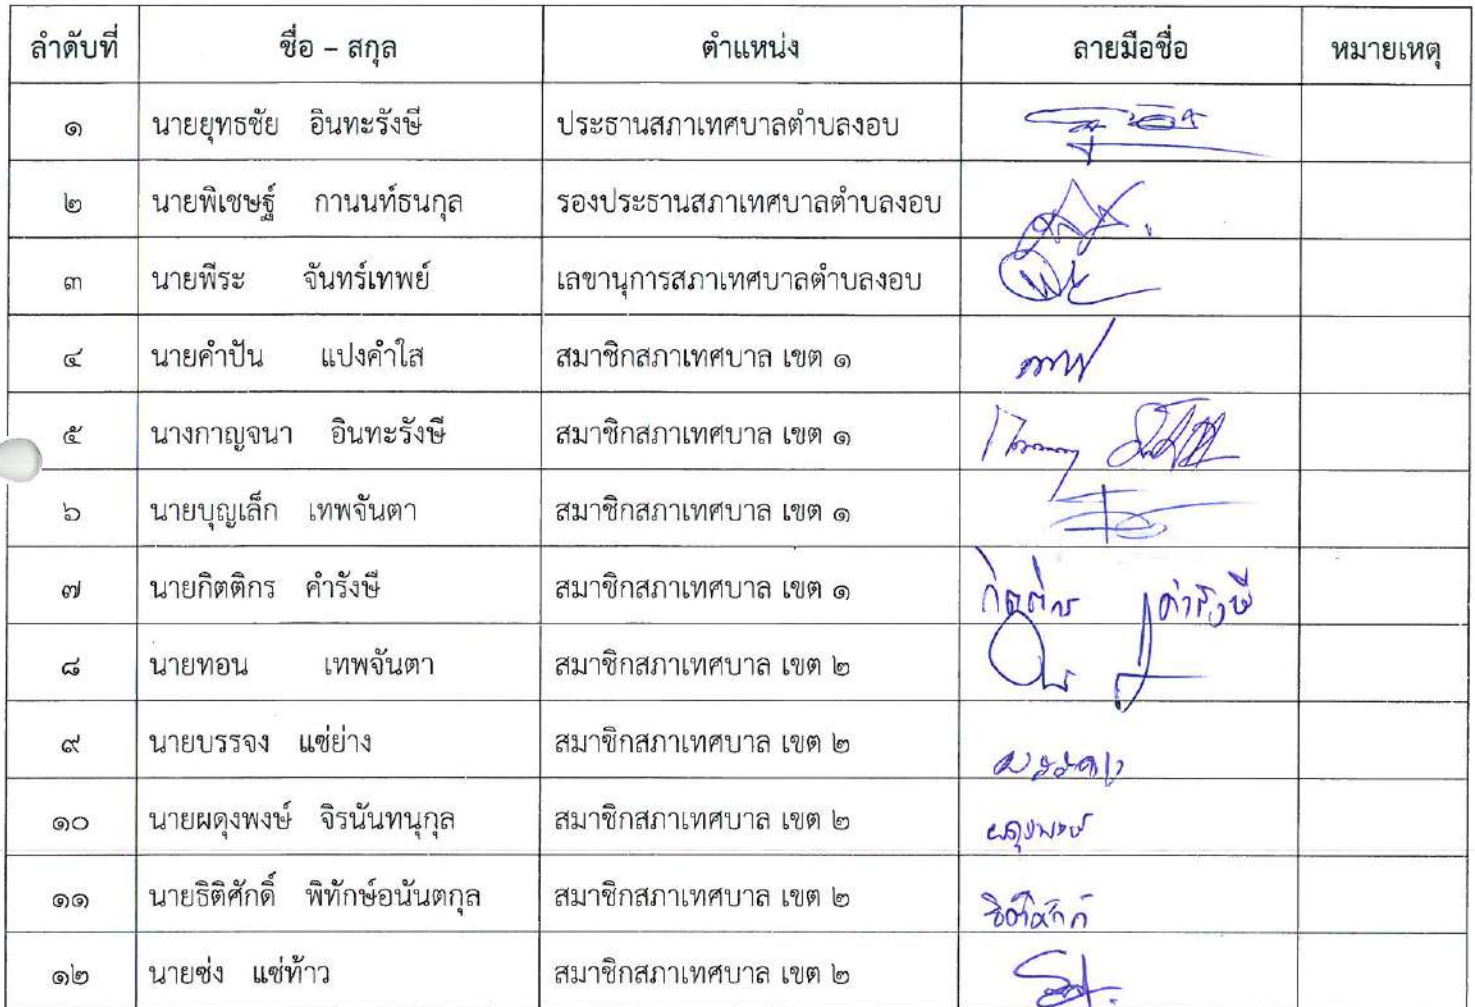 ลำดับที่ ชื่อ – สกุล ตำแหน่ง ลายมือชื่อ หมายเหตุ
๑ นายยุทธชัย อินทะรังษี ประธานสภาเทศบาลตำบลงอบ
๒ นายพิเชษฐ์ กานนท์ธนกุล รองประธานสภาเทศบาลตำบลงอบ
๓ นายพีระ จันทร์เทพย์ เลขานุการสภาเทศบาลตำบลงอบ
๔ นายคำปัน แปงคำใส สมาชิกสภาเทศบาล เขต ๑
๕ นางกาญจนา อินทะรังษี สมาชิกสภาเทศบาล เขต ๑
๖ นายบุญเล็ก เทพจันตา สมาชิกสภาเทศบาล เขต ๑
๗ นายกิตติกร คำรังษี สมาชิกสภาเทศบาล เขต ๑ กิตติกร คำรังษี
๘ นายทอน เทพจันตา สมาชิกสภาเทศบาล เขต ๒
๙ นายบรรจง แซ่ย่าง สมาชิกสภาเทศบาล เขต ๒ บรรจง
๑๐ นายผดุงพงษ์ จิรนันทนุกุล สมาชิกสภาเทศบาล เขต ๒ ผดุงพงษ์
๑๑ นายธิติศักดิ์ พิทักษ์อนันตกุล สมาชิกสภาเทศบาล เขต ๒ ธิติศักดิ์
๑๒ นายซ่ง แซ่ท้าว สมาชิกสภาเทศบาล เขต ๒